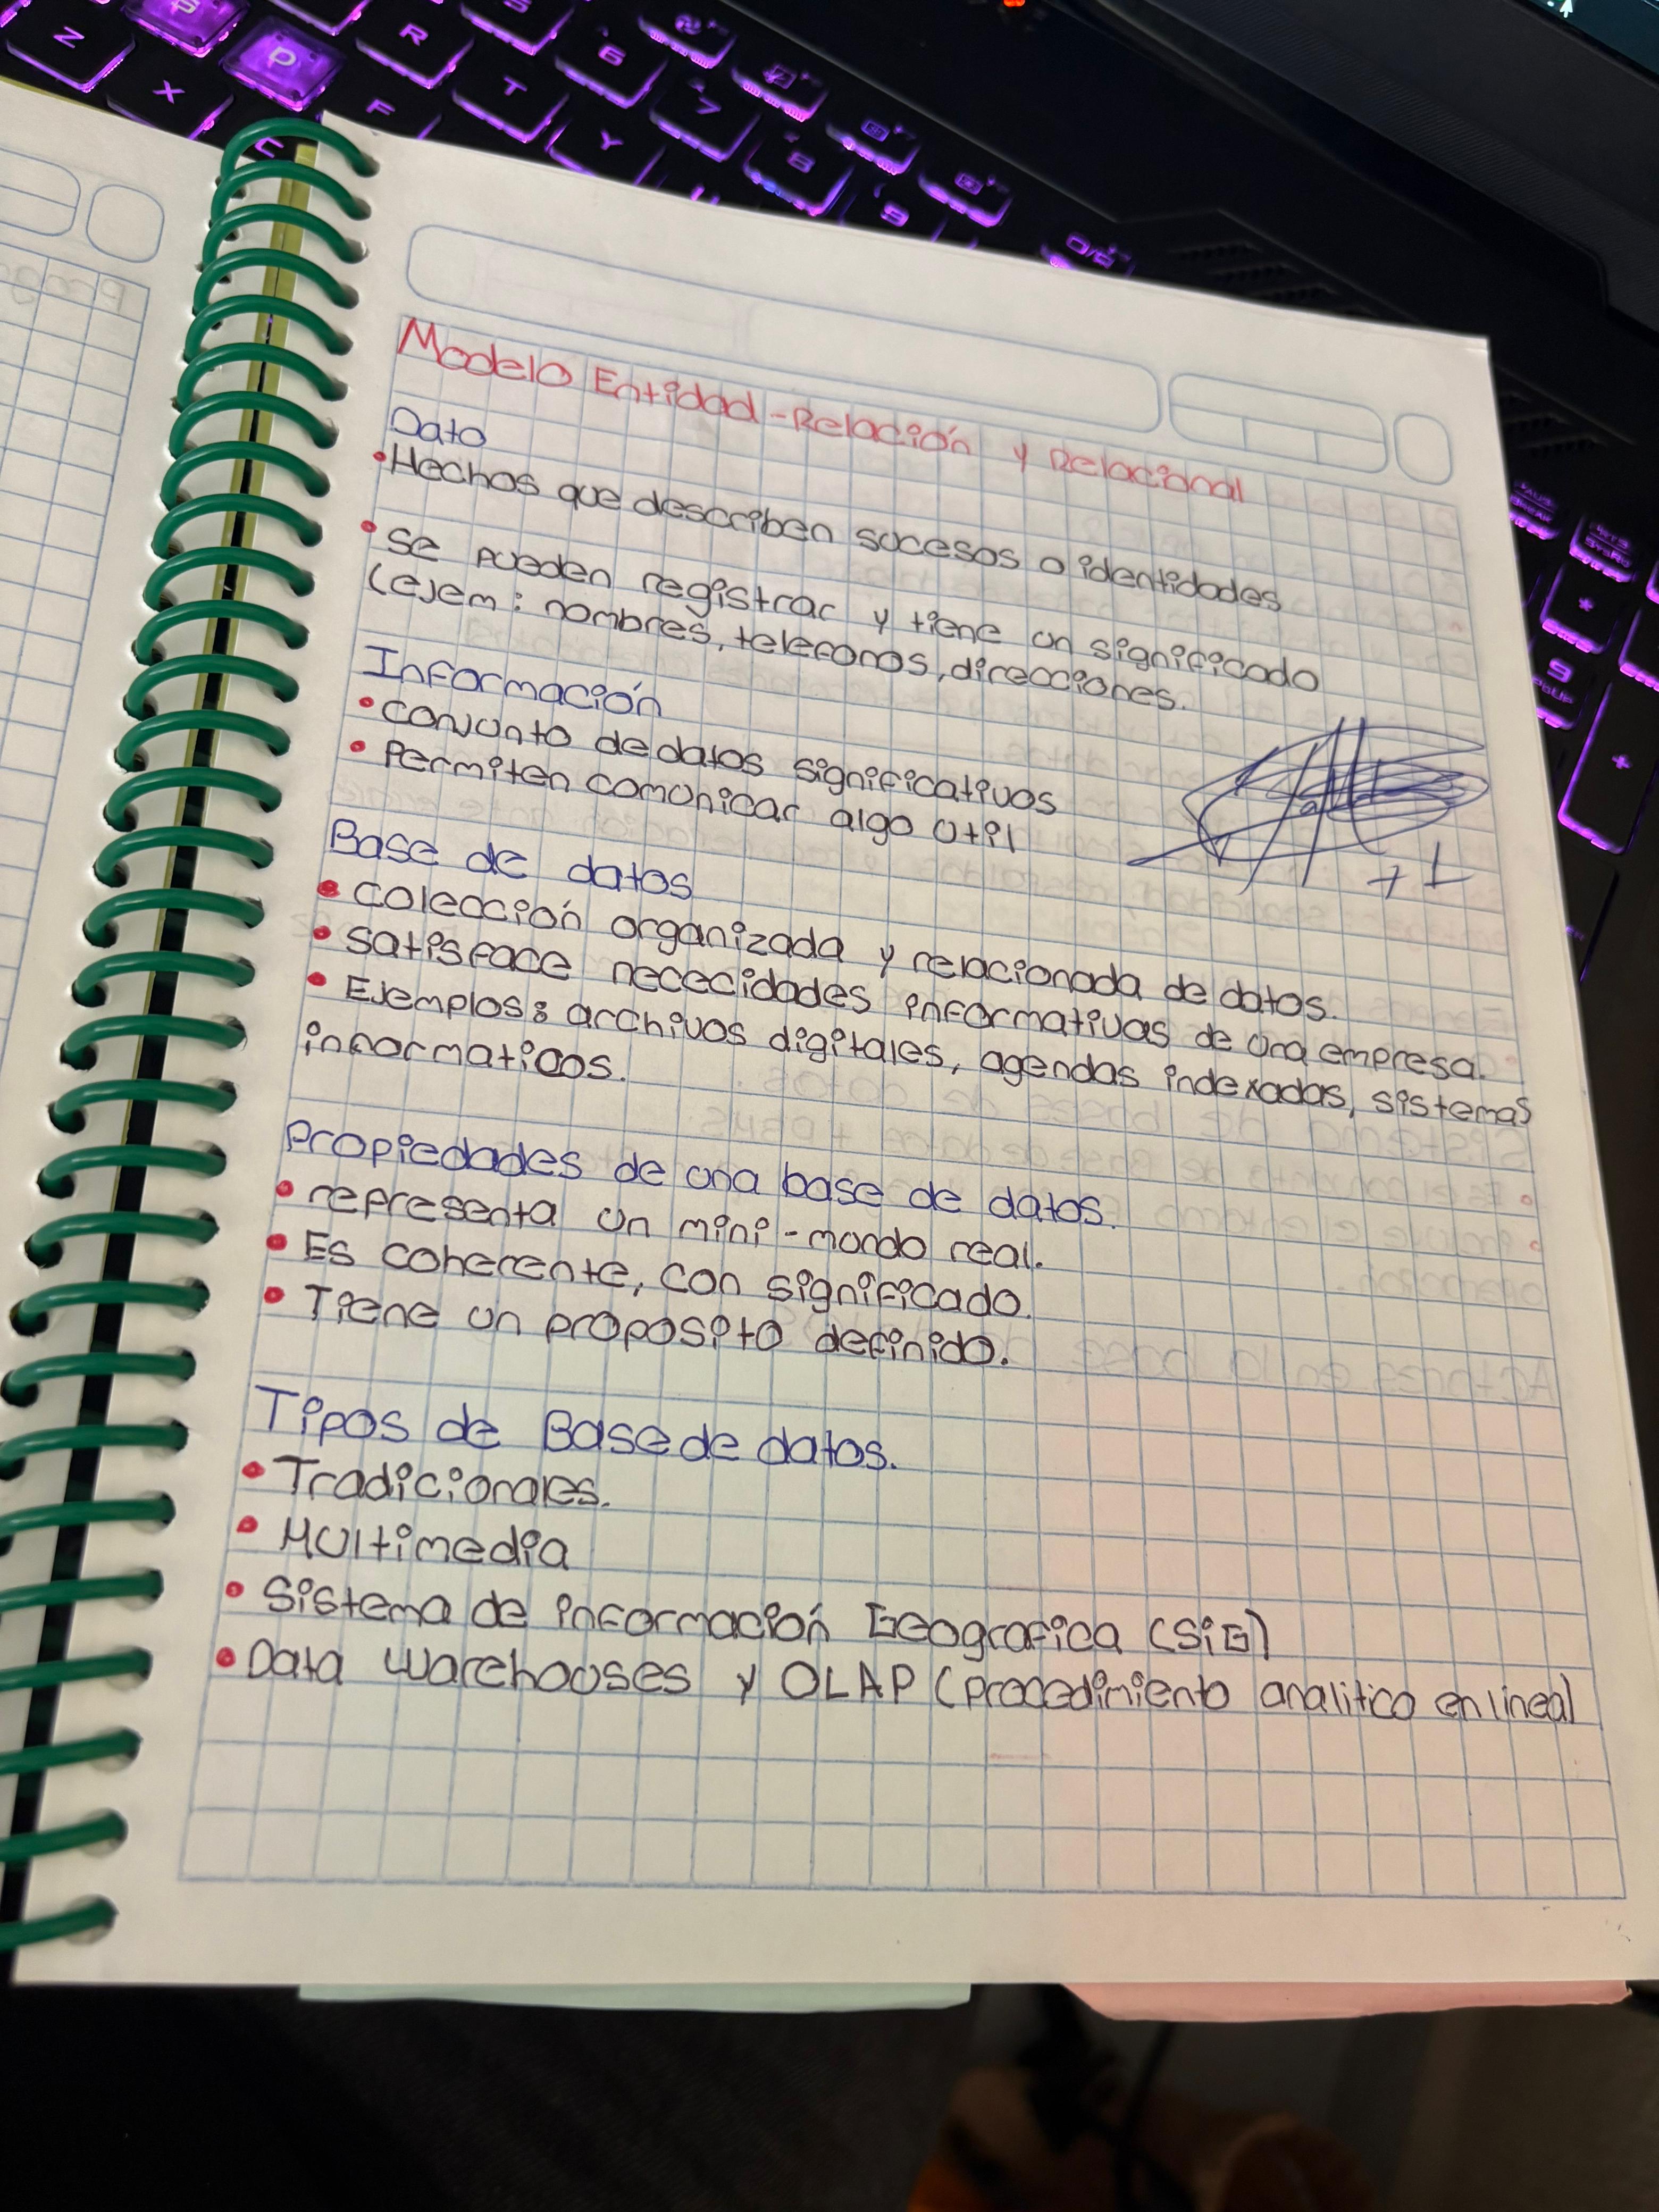 Modelo Entidad-Relación y Relacional
Dato
• Hechos que describen sucesos o identidades
• Se pueden registrar y tiene un significado
(ejem: nombres, telefonos, direcciones.
Información
• conjunto de datos significativos
• Permiten comunicar algo util
+1
Base de datos
• colección organizada y relacionada de datos.
• satisface nececidades informativas de una empresa.
• Ejemplos: archivos digitales, agendas indexadas, sistemas
informaticos.
Propiedades de una base de datos.
• representa un mini-mundo real.
• Es coherente, con significado.
• Tiene un proposito definido.
Tipos de Base de datos.
• Tradicionales.
• Multimedia
• Sistema de información Geografica (SiG)
• Data warehouses y OLAP (procedimiento analitico en linea)
Z
X
C
P
F
R
T
Y
5
6
7
8
9